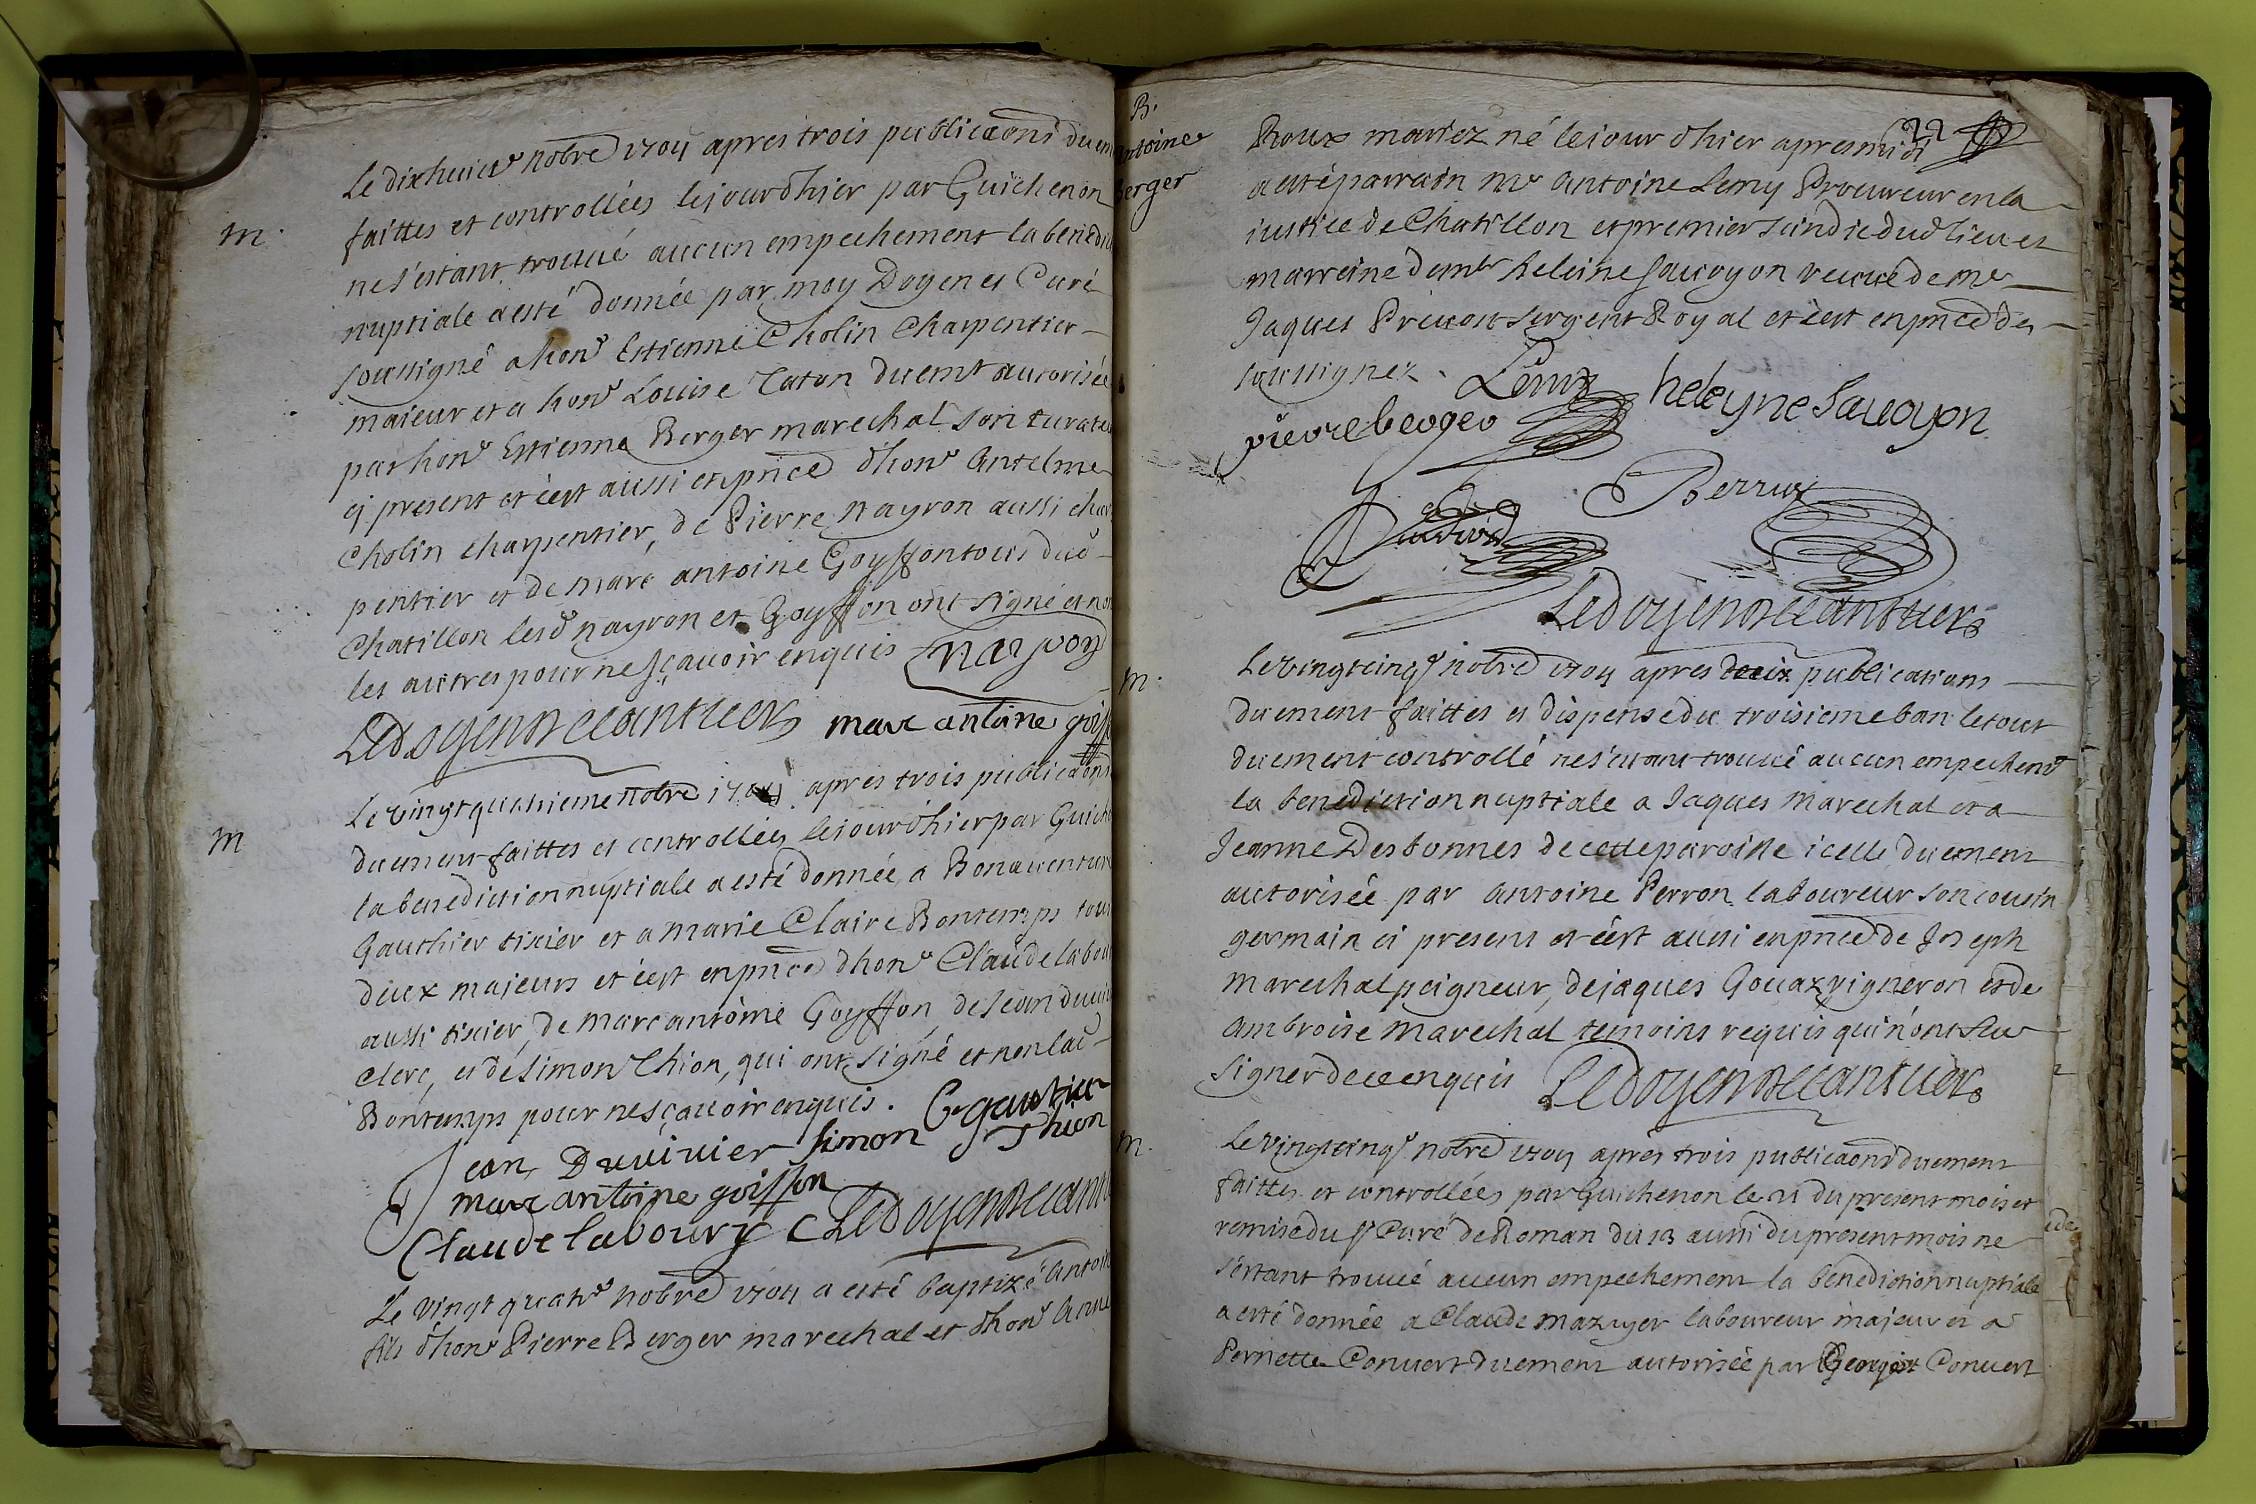 Le dixhuict nobre 1704 apres trois publicaons duem
faittes et controllées le jour dhier par Guichenon
m.
ne s'estant trouué aucun empechement la benedic
nuptiale a esté donnée par moy Doyen et Curé
soussigné a hon Estienne Cholin Charpentier
majeur et a hon Louise Caton duemt autorisée
par hon Estienne Berger marechal son curate
cy present et c'est aussi en pnce d'hon Antelme
Cholin charpentier, de Pierre nayron aussi char
pentier et de marc antoine Goyffon tous dud
Chatillon lesd nayron et Goyffon ont signé et non
les autres pour ne sçauoir enquis nayron
Le doyen marc antoine goiff
Le vingt quatrieme nobre 1704 apres trois publicaons
m
duement faittes et controllées le jour d'hier par Guiche
la benediction nuptiale a esté donnée a Bonauentur
Gauthier tixier et a marie Claire Bontemps tous
deux majeurs et c'est en pnce d'hon Claude labou
aussi tixier, de marc antoine Goyffon de Jean duuiu
clerc, et de simon Thion, qui ont signé et non lad
Bontemps pour ne sçauoir enquis. G gautier
Jean Duuiuier simon Thion
marc antoine goiffon
Claude laboury Le doyen
Le vingt quatr nobre 1704 a esté baptizé antoin
fils d'hon Pierre Berger marechal et d'hon Anne
B.
Antoine
Berger
22
Roux mariez né le jour d'hier apres midi
a esté parrain mr antoine Lemy Procureur en la
justice de Chatillon et premier scindic dud lieu et
marreine dem heleine sauoyon veuue de me
Jaques Preuost sergent Royal et c'est en pnce des
soussignez. Lemy heleyne Sauoyon
pierre berger
Berrux
Le doyen
Le vingtcinq nobre 1704 apres deux publications
m.
duement faittes et dispense du troisieme ban le tout
duement controllé ne s'estant trouué aucun empechemt
la benediction nuptiale a Jaques Marechal et a
Jeanne Desbonnes de cette paroisse icelle duement
autorisée par antoine Perron laboureur son cousin
germain ci present et c'est aussi en pnce de Joseph
Marechal peigneur, de jaques Gouaz vigneron et de
Ambroise Marechal temoins requis qui n'ont sceu
signer de ce enquis Le doyen
m.
Le vingtcinq nobre 1704 apres trois publicaons duement
faittes et controllées par Guichenon le 21 du present mois et
remise du sr Curé de Roman du 23 aussi du present mois ne
s'estant trouué aucun empechement la benediction nuptiale
a esté donnée a Claude mazuyer laboureur majeur et a
Pernette Conuert duement autorisée par George Conuert